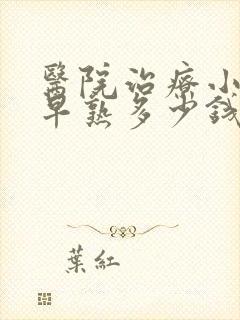 醫院治療小
早熟多少錢
葉紅